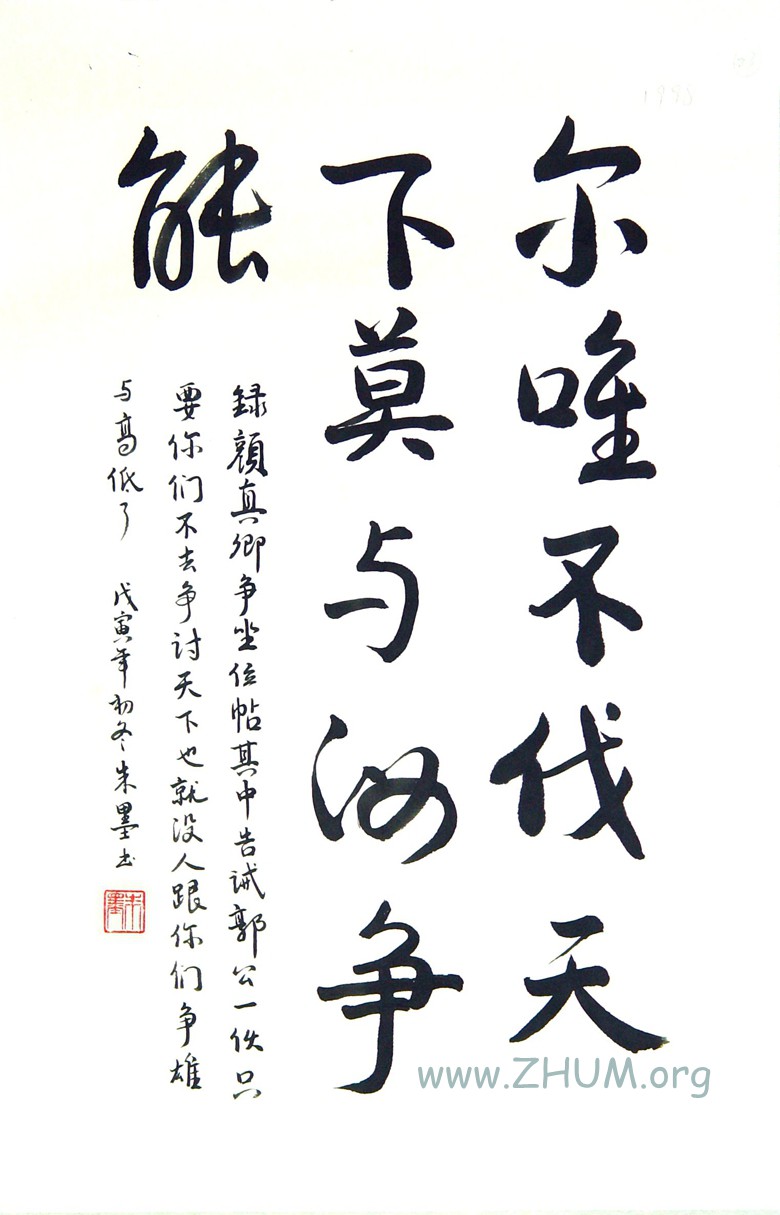 1998
尔唯不伐天
下莫与汝争
能
録顔真卿争坐位帖其中告诫郭公一伙只
要你们不去争讨天下也就没人跟你们争雄
与高低了 戊寅年初冬朱墨书
朱墨
www.ZHUM.org